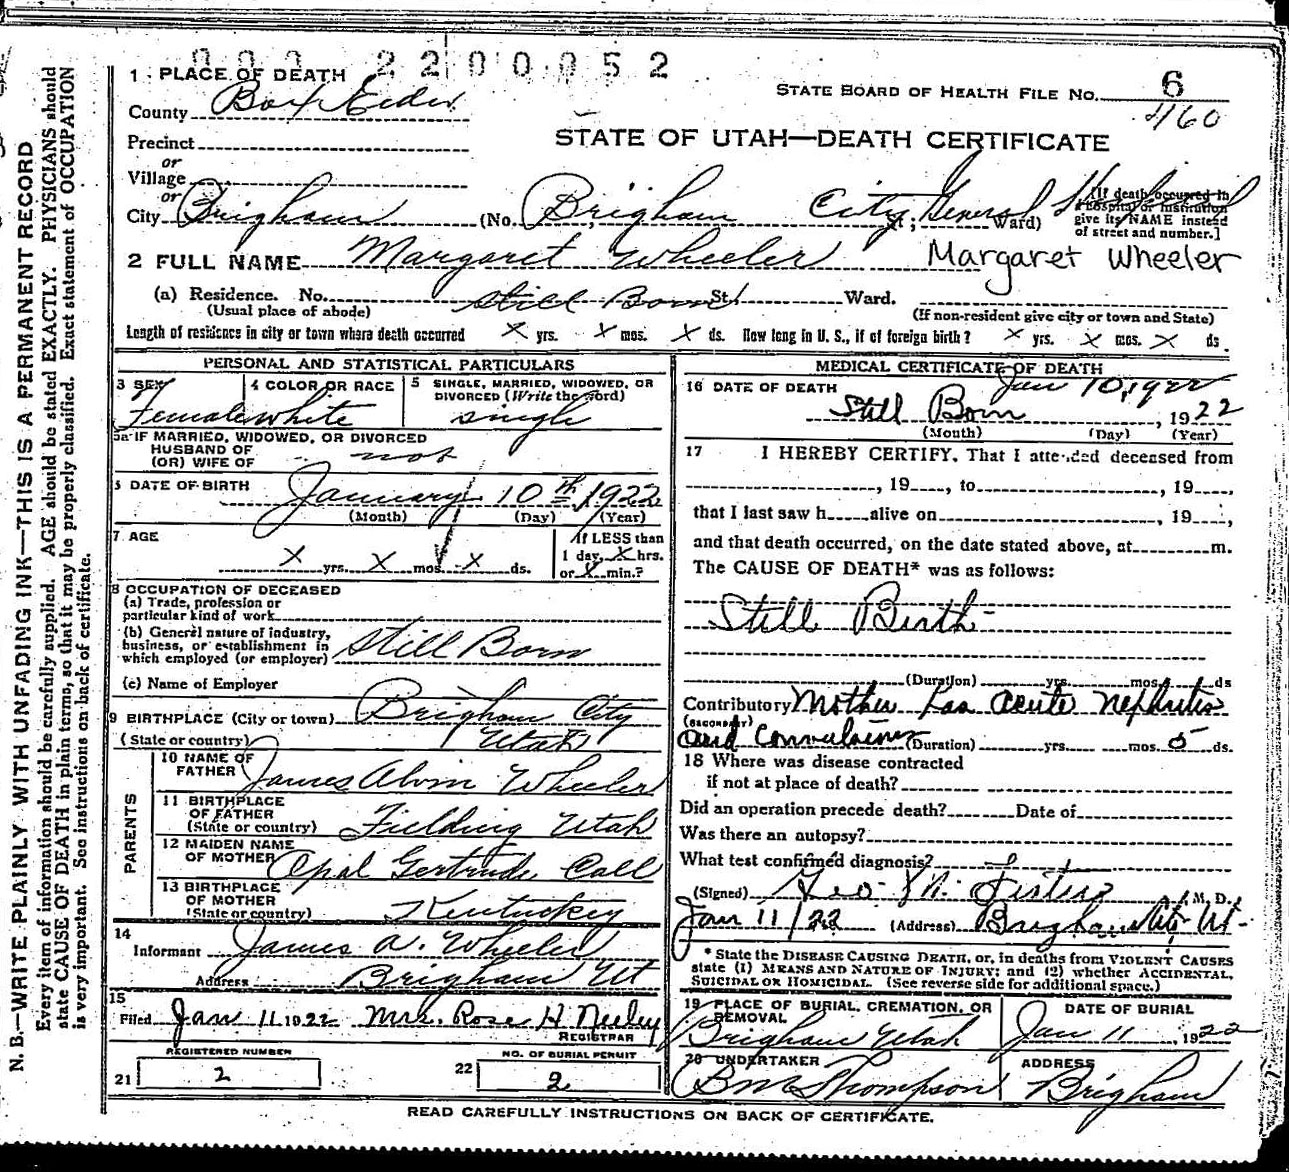 000 2200052
1 PLACE OF DEATH
STATE BOARD OF HEALTH FILE NO. 6
County Box Elder
4160
STATE OF UTAH—DEATH CERTIFICATE
Precinct
or
Village
or
City Brigham (No. Brigham City General Hospital St.; Ward) [If death occurred in a hospital or institution give its NAME instead of street and number.]
2 FULL NAME Margaret Wheeler Margaret Wheeler
(a) Residence. No. Still Born St. Ward.
(Usual place of abode) (If non-resident give city or town and State)
Length of residence in city or town where death occurred X yrs. X mos. X ds. How long in U. S., if of foreign birth? X yrs. X mos. X ds.
PERSONAL AND STATISTICAL PARTICULARS
3 SEX Female
4 COLOR OR RACE white
5 SINGLE, MARRIED, WIDOWED, OR DIVORCED (Write the word) single
5a IF MARRIED, WIDOWED, OR DIVORCED
HUSBAND OF
(OR) WIFE OF not
6 DATE OF BIRTH January 10th 1922
(Month) (Day) (Year)
7 AGE X yrs. X mos. X ds.
If LESS than
1 day, X hrs.
or X min.?
8 OCCUPATION OF DECEASED
(a) Trade, profession or
particular kind of work
(b) General nature of industry,
business, or establishment in
which employed (or employer) Still Born
(c) Name of Employer
9 BIRTHPLACE (City or town) Brigham City
(State or country) Utah
PARENTS
10 NAME OF
FATHER James Alvin Wheeler
11 BIRTHPLACE
OF FATHER
(State or country) Fielding Utah
12 MAIDEN NAME
OF MOTHER Opal Gertrude Call
13 BIRTHPLACE
OF MOTHER
(State or country) Kentuckey
14
Informant James A. Wheeler
Address Brigham Ut
15
Filed Jan 11 1922 Mrs. Rose H Neeley
REGISTRAR
REGISTERED NUMBER
21 2
NO. OF BURIAL PERMIT
22 2
MEDICAL CERTIFICATE OF DEATH
16 DATE OF DEATH Jan 10, 1922
Still Born, 1922
(Month) (Day) (Year)
17 I HEREBY CERTIFY, That I attended deceased from
, 19 , to , 19 ,
that I last saw h alive on , 19 ,
and that death occurred, on the date stated above, at m.
The CAUSE OF DEATH* was as follows:
Still Birth
(Duration) yrs. mos. ds
Contributory Mother has acute nephritis
(SECONDARY)
and Convulsions (Duration) yrs. mos. 5 ds.
18 Where was disease contracted
if not at place of death?
Did an operation precede death? Date of
Was there an autopsy?
What test confirmed diagnosis?
(Signed) Geo M. Fister, M. D.
Jan 11/22 (Address) Brigham City Ut-
* State the DISEASE CAUSING DEATH, or, in deaths from VIOLENT CAUSES
state (1) MEANS AND NATURE OF INJURY; and (2) whether ACCIDENTAL,
SUICIDAL OR HOMICIDAL. (See reverse side for additional space.)
19 PLACE OF BURIAL, CREMATION, OR
REMOVAL Brigham Utah
DATE OF BURIAL
Jan 11, 1922
20 UNDERTAKER
B M Thompson
ADDRESS
Brigham
READ CAREFULLY INSTRUCTIONS ON BACK OF CERTIFICATE.
N. B.—WRITE PLAINLY WITH UNFADING INK—THIS IS A PERMANENT RECORD
Every item of information should be carefully supplied. AGE should be stated EXACTLY. PHYSICIANS should
state CAUSE OF DEATH in plain terms, so that it may be properly classified. Exact statement of OCCUPATION
is very important. See instructions on back of certificate.